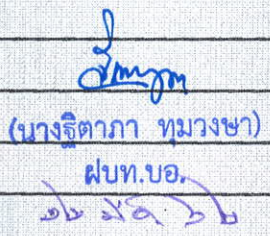 (นางฐิตาภา ทุมวงษา)
ฝบท.บอ.
๑๒ มี.ค. ๖๒